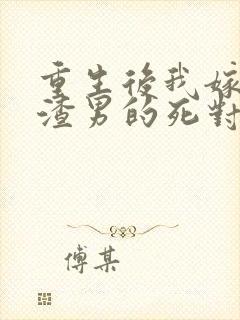 重生後我嫁
渣男的死對
傅某